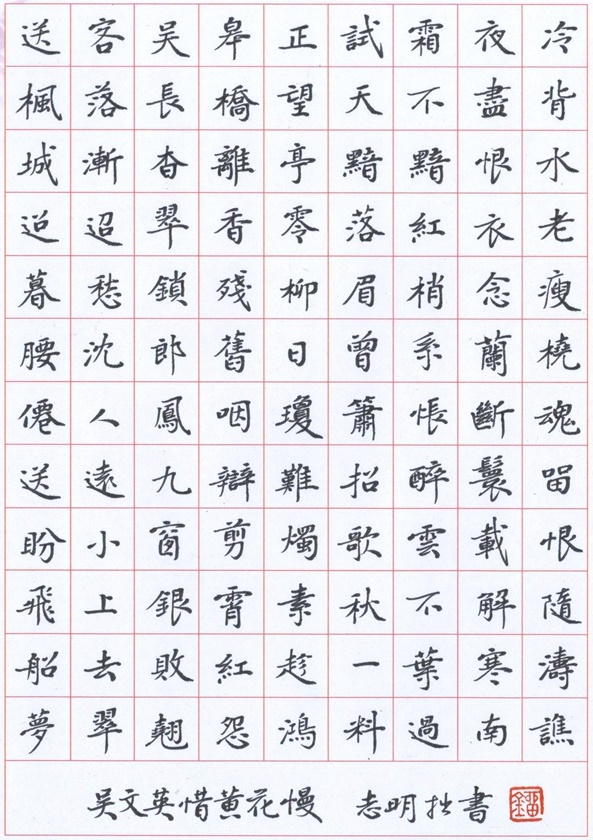 送客吳皋正試霜夜冷
楓落長橋望天不盡背
城漸杳離亭黯黯恨水
迢迢翠香零落紅衣老
暮愁鎖殘柳眉梢念瘦
腰沈郎舊日曾系蘭橈
僊人鳳咽瓊簫悵斷魂
送遠九辯難招醉鬟留
盼小窗剪燭歌雲載恨
飛上銀霄素秋不解隨
船去敗紅趁一葉寒濤
夢翠翹怨鴻料過南譙
吴文英惜黄花慢 志明拙書